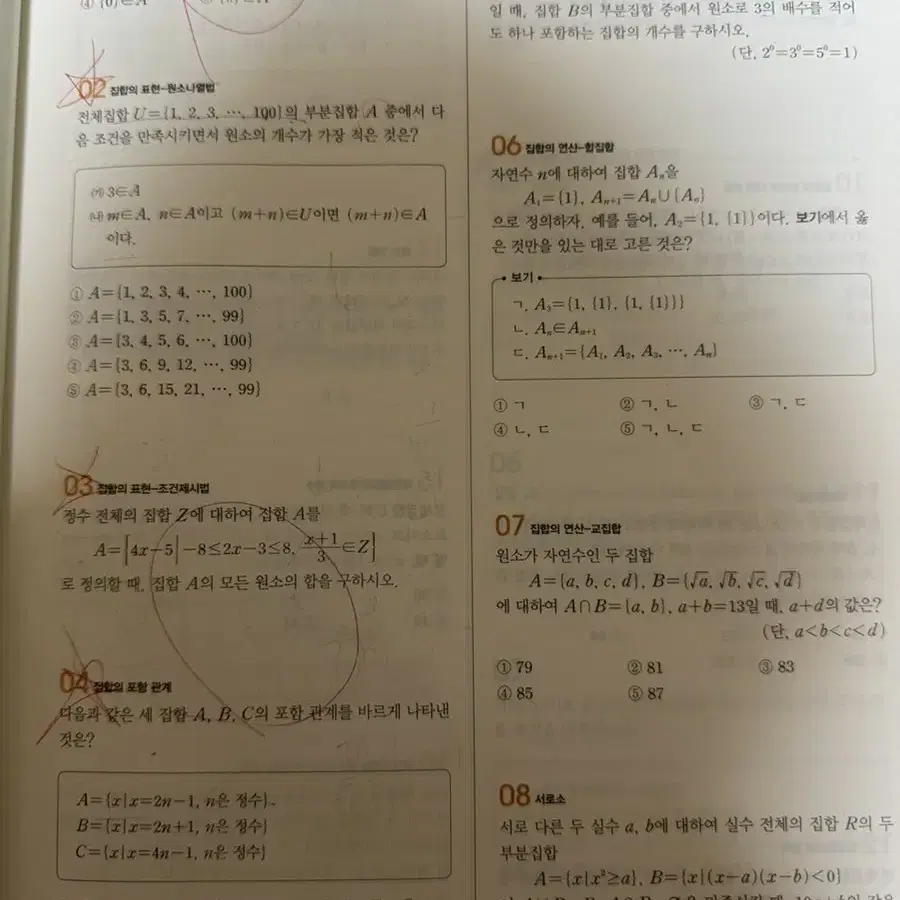 ④ {0}∈A
02 집합의 표현-원소나열법
전체집합 U={1, 2, 3, …, 100}의 부분집합 A 중에서 다
음 조건을 만족시키면서 원소의 개수가 가장 적은 것은?
㈎ 3∈A
㈏ m∈A, n∈A이고 (m+n)∈U이면 (m+n)∈A
이다.
① A={1, 2, 3, 4, …, 100}
② A={1, 3, 5, 7, …, 99}
③ A={3, 4, 5, 6, …, 100}
④ A={3, 6, 9, 12, …, 99}
⑤ A={3, 6, 15, 21, …, 99}
03 집합의 표현-조건제시법
정수 전체의 집합 Z에 대하여 집합 A를
A={4x-5| -8≤2x-3≤8, (x+1)/3∈Z}
로 정의할 때, 집합 A의 모든 원소의 합을 구하시오.
04 집합의 포함 관계
다음과 같은 세 집합 A, B, C의 포함 관계를 바르게 나타낸
것은?
A={x|x=2n-1, n은 정수}
B={x|x=2n+1, n은 정수}
C={x|x=4n-1, n은 정수}
일 때, 집합 B의 부분집합 중에서 원소로 3의 배수를 적어
도 하나 포함하는 집합의 개수를 구하시오.
(단, 2⁰=3⁰=5⁰=1)
06 집합의 연산-합집합
자연수 n에 대하여 집합 Aₙ을
A₁={1}, Aₙ₊₁=Aₙ∪{Aₙ}
으로 정의하자. 예를 들어, A₂={1, {1}}이다. 보기에서 옳
은 것만을 있는 대로 고른 것은?
보기
ㄱ. A₃={1, {1}, {1, {1}}}
ㄴ. Aₙ∈Aₙ₊₁
ㄷ. Aₙ₊₁={A₁, A₂, A₃, …, Aₙ}
① ㄱ ② ㄱ, ㄴ ③ ㄱ, ㄷ
④ ㄴ, ㄷ ⑤ ㄱ, ㄴ, ㄷ
07 집합의 연산-교집합
원소가 자연수인 두 집합
A={a, b, c, d}, B={√a, √b, √c, √d}
에 대하여 A∩B={a, b}, a+b=13일 때, a+d의 값은?
(단, a<b<c<d)
① 79 ② 81 ③ 83
④ 85 ⑤ 87
08 서로소
서로 다른 두 실수 a, b에 대하여 실수 전체의 집합 R의 두
부분집합
A={x|x²≥a}, B={x|(x-a)(x-b)<0}